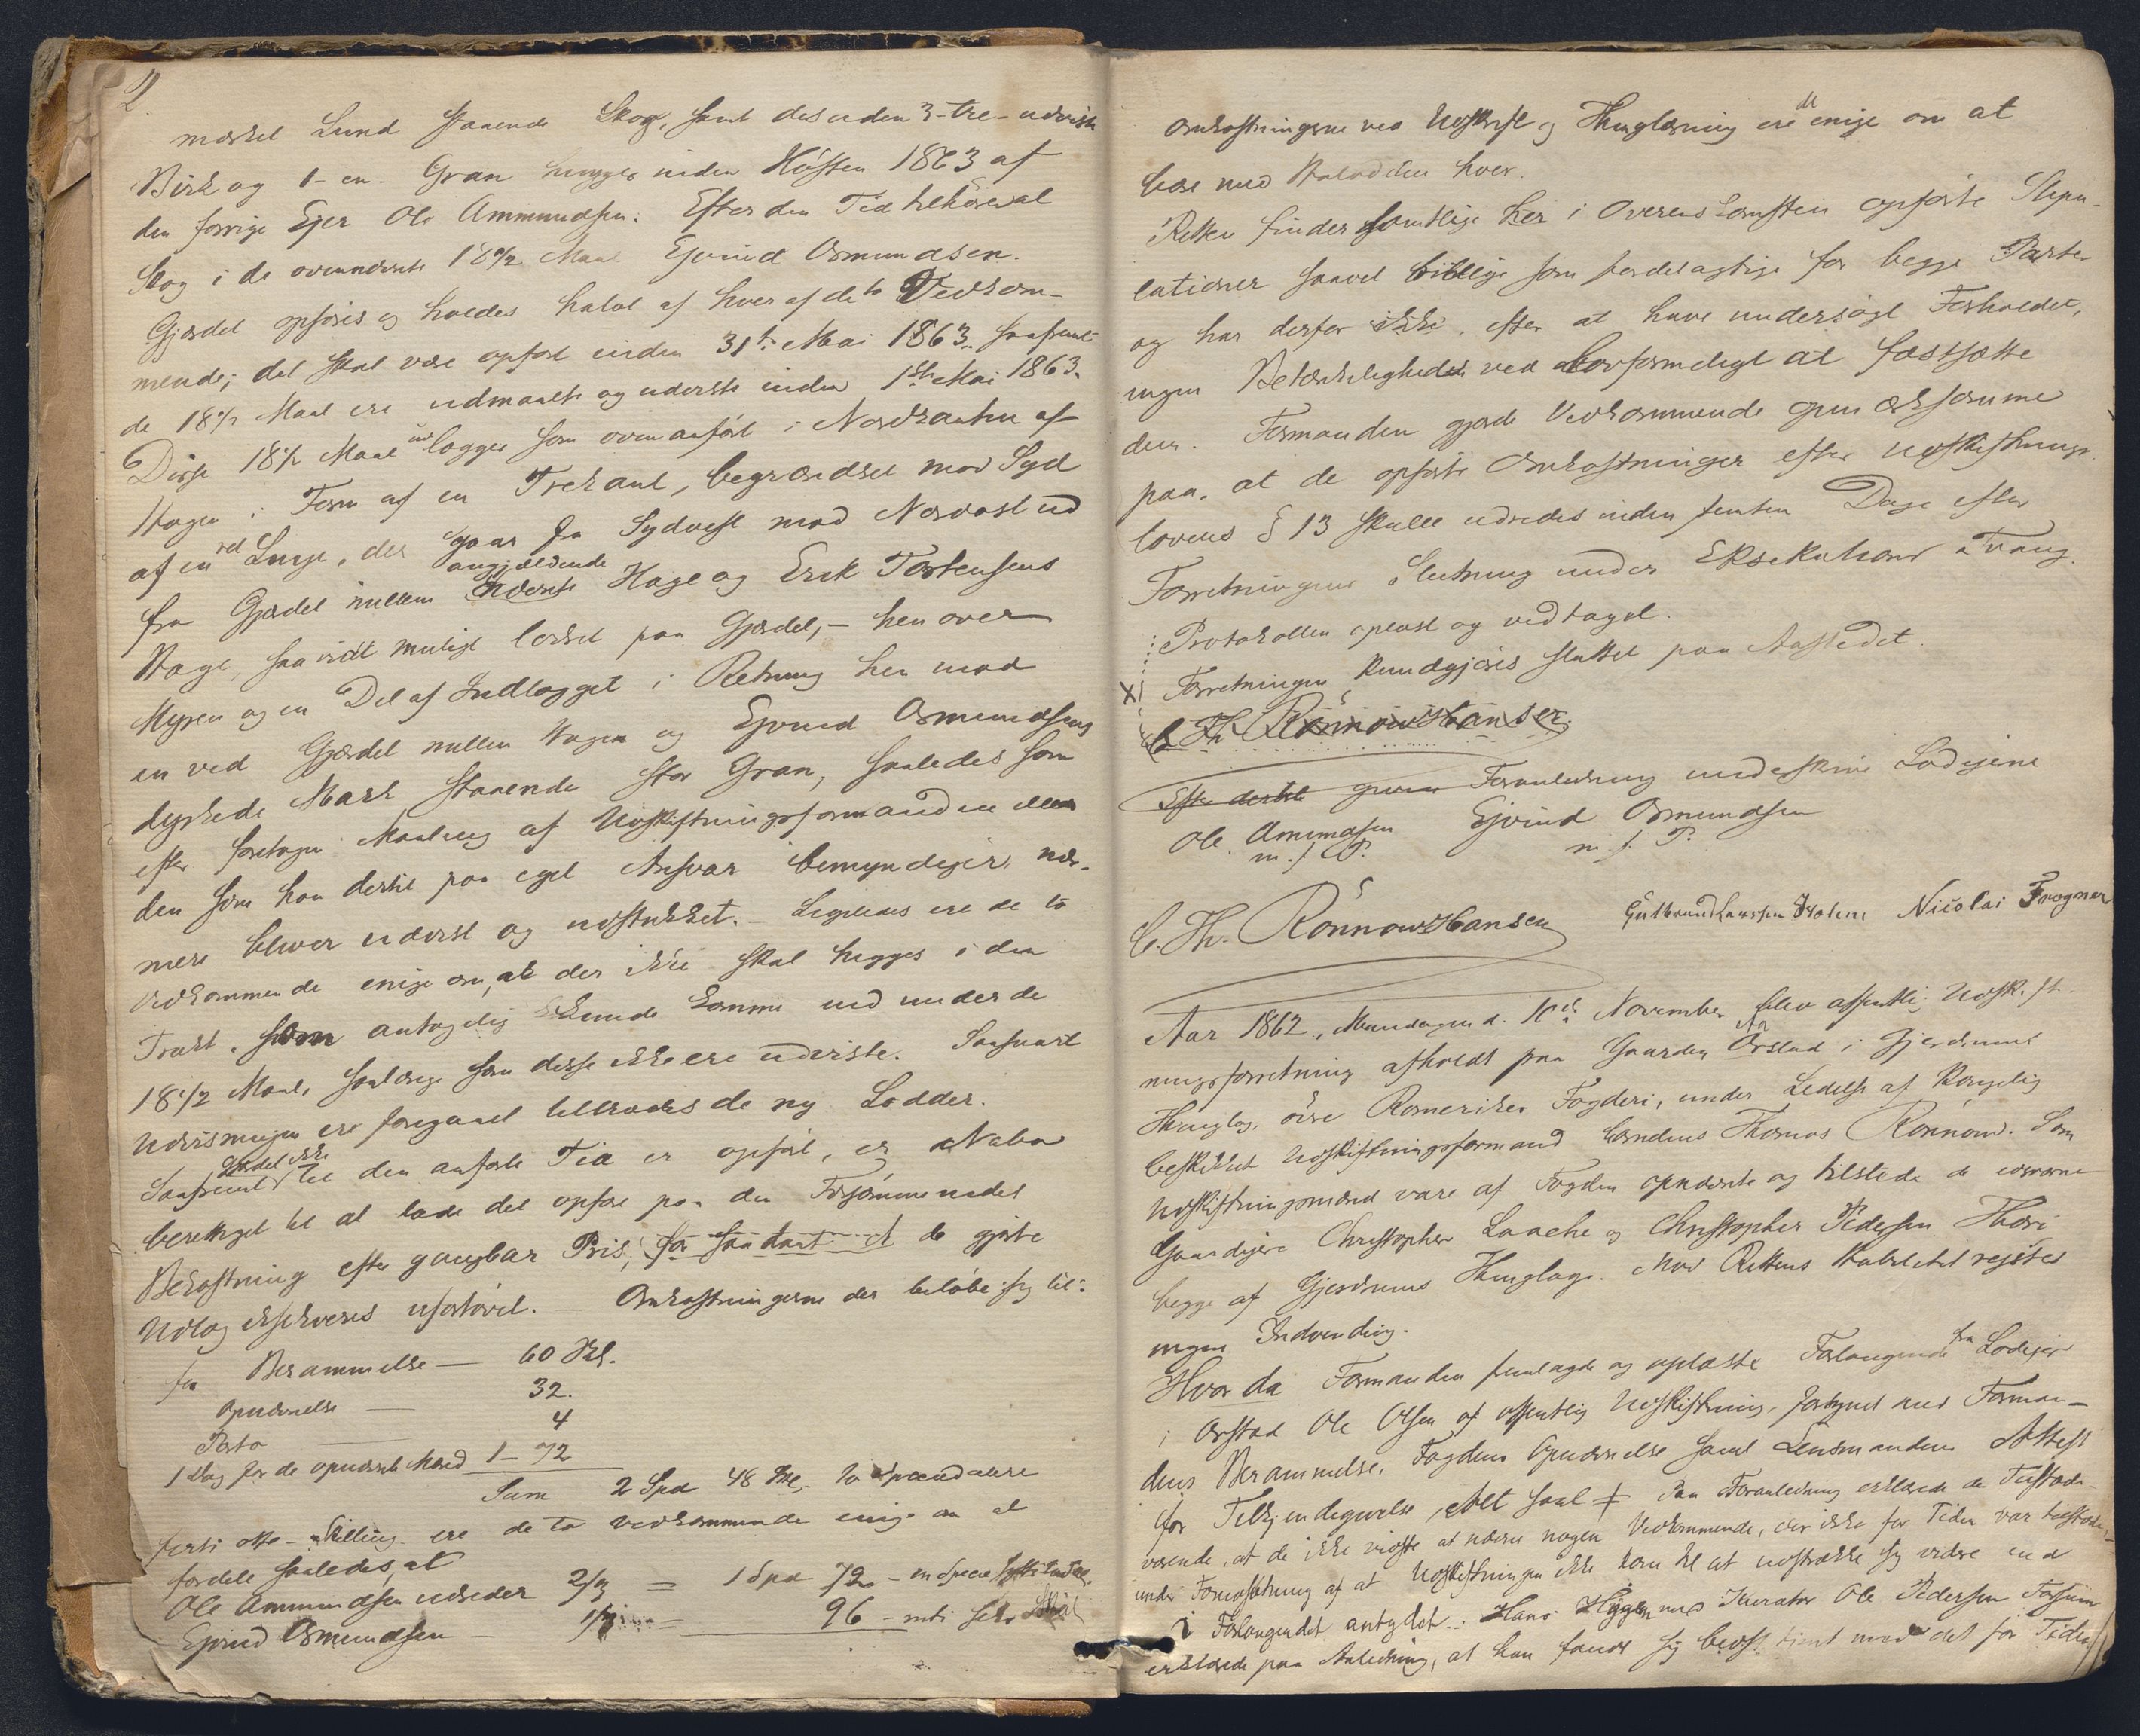 2
mærket Lund staaende Skog, samt desuden 3-tre- udviste
Birk og 1- en- Gran hugges inden Høsten 1863 af
den forrige Ejer Ole Ammundsen. Efter den Tid tilhører al
Skog i de ovennævnte 18½ Maal Ejvind Osmundsen.
Gjærdet opføres og holdes halvt af hver af de to Vedkom-
mende; det skal være opført inden 31te Mai 1863. saafremt
de 18½ Maal ere udmaalte og udviste inden 1ste Mai 1863.
Disse 18½ Maal udlægges som oven anført i Nordkanten af
Hagen i Form af en Trekant, begrændset mod Syd
af en ret Linje, der gaar fra Sydvest mod Nordost ud
fra Gjærdet mellem angjældende nævnte Hage og Erik Torstensens
Hage, saavidt muligt lodret paa Gjærdet, - hen over
Myren og en Del af Indlægget i Retning hen mod
en ved Gjærdet mellem Hagen og Ejvind Osmundsens
dyrkede Mark staaende stor Gran, saaledes som
efter foretagen Maaling af Udskiftningsformanden eller
den som han dertil paa eget Ansvar bemyndiger, nær-
mere bliver udvist og udstukket. - Ligeledes ere de to
Vedkommende enige om, at der ikke skal hugges i den
Trakt, som antagelig kunde komme ind under de
18½ Maal, saalænge som disse ikke ere udviste. Saasnart
Udvisningen er foregaaet tiltrædes de ny Lodder.
Saafremt Gjærdet ikke til den anførte Tid er opført, er Nabo
berettiget til at lade det opføre paa den Forsømmendes
Bekostning efter gangbar Pris, for saadant de gjorte
Udlag exekveres uforløvet. - Omkostningerne der beløbe sig til:
for Berammelse — 60 Sk.
Opnævnelse — 32.
Porto — 4
1 Dag for de opnævnte Mænd 1 - 72
Sum 2 Spd 48 Sk, to Speciedalere
forti otte - Skilling ere de to vedkommende enige om at
fordele saaledes, at
Ole Ammundsen udreder 2/3 = 1 Spd 72 - en Specie
Ejvind Osmundsen 1/3 = 96 - nitti sex Skil
Omkostningerne ved Udskrift og Thinglæsning ere de enige om at
bære med Halvdelen hver.
Retten finder samtlige her i Overenskomsten opførte Stipu-
lationer saavel billige som fordelagtige for begge Parter
og har derfor ikke, efter at have undersøgt Forholdet,
ingen Betænkeligheder ved lovformeligt at fastsætte
dem. Formanden gjorde Vedkommende opmærksomme
paa, at de opførte Omkostninger efter Udskiftnings-
lovens § 13 skulle udredes inden femten Dage efter
Forretningens Slutning under Eksekutions Tvang.
Protokollen oplæst og vedtaget.
Forretningen kundgjøres sluttet paa Aastedet.
C. Th. Rönnow Hansen.
Efter dertil given Foranledning underskrive Lodejerne
Ole Amundsen Ejvind Osmundsen
m. f. P. m. f. P.
C. Th. Rönnow Hansen Gulbrand Larssen Holm Nicolai Frogner
Aar 1862, Mandagen d. 10de November blev offentlig Udskift-
ningsforretning afholdt paa Gaarden Ørstad i Gjerdrums
Thinglag, øvre Romerikes Fogderi, under Ledelse af Kongelig
beskikket Udskiftningsformand Cornelius Thomas Rönnow. Som
Udskiftningsmænd vare af Fogden opnævnte og tilstede de edsvorne
Gaardejere Christopher Laache og Christopher Pedersen
begge af Gjerdrums Thinglag. Mod Rettens Habilitet rejstes
ingen Indvending.
Hvor da Formanden fremlagde og oplæste Forlangende fra Lodejer
i Ørstad Ole Olsen af offentlig Udskiftning, forsynet med Forman-
dens Berammelse, Fogdens Opnævnelse samt Lensmandens Attest
for Tilkjendegivelse. Alt saal Paa Foranledning erklærede de Tilstede-
værende, at de ikke vidste at nævne nogen Vedkommende, der ikke for Tiden var tilstede,
under Forudsætning af at Udskiftningen ikke kom til at udstrække sig videre end
i Forlangendet antydet. Hans med Kurator Ole Pedersen
erklærede paa Anledning, at han fandt sig bedst tjent med det for Tiden